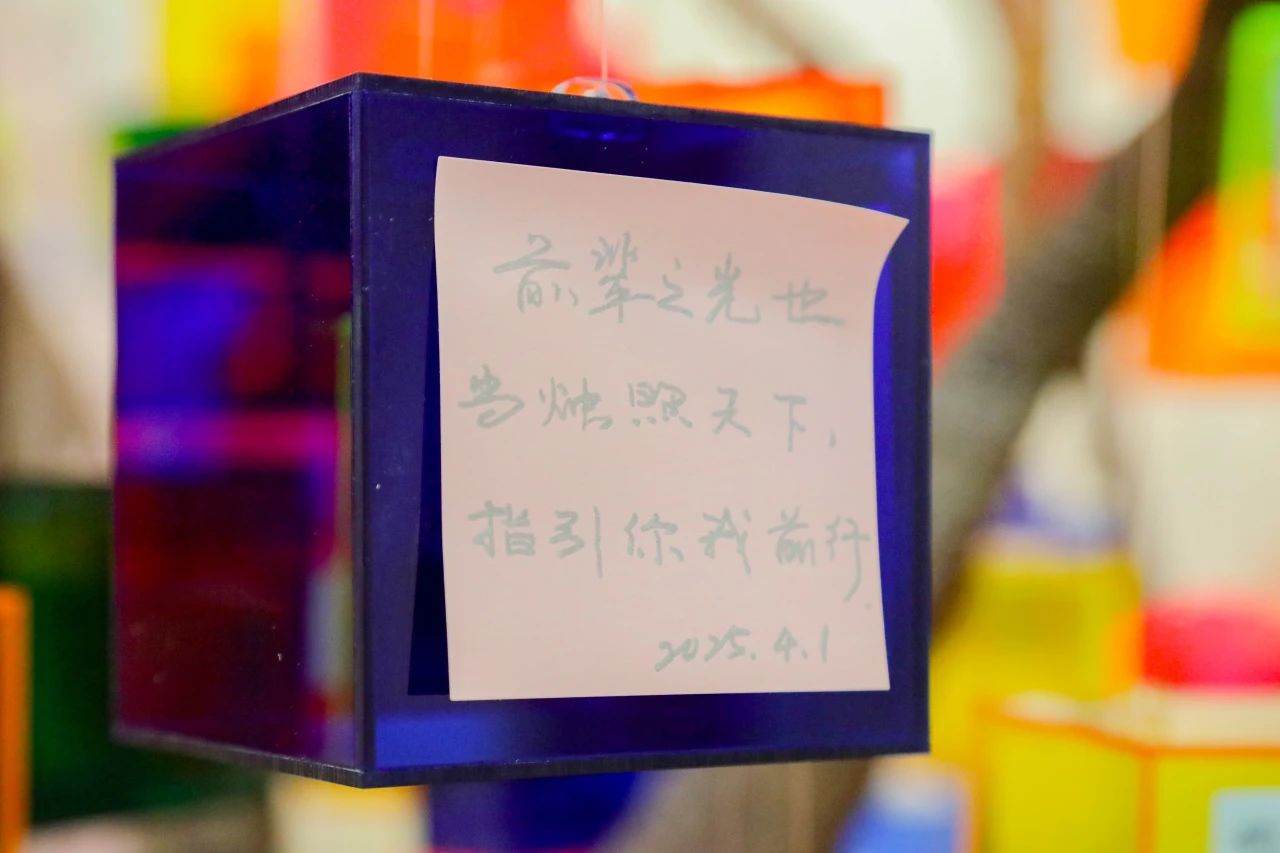 前辈之光也
当烛照天下,
指引你我前行.
2025.4.1